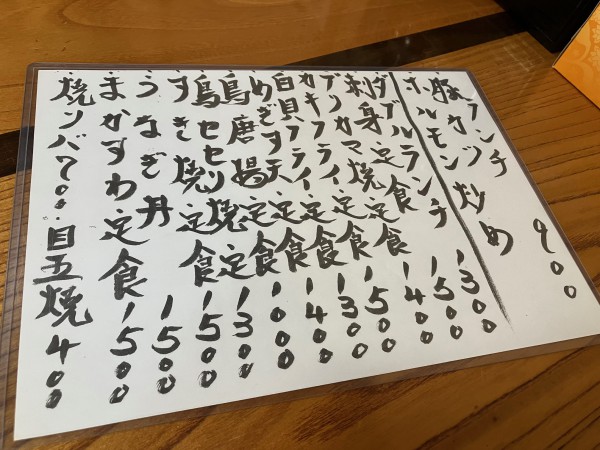 ランチ
豚カツ
ホルモン炒め 900
ダブルランチ 1300
刺身定食 1500
ブリカマ焼定食 1400
カキフライ定食 1500
白貝フライ定食 1300
めぎす天定食 1400
鳥唐揚定食 1000
鳥セセリ焼定 1300
すき焼定食 1500
うなぎ丼 1500
まかすわ定食 1500
焼ソバ700・目玉焼400